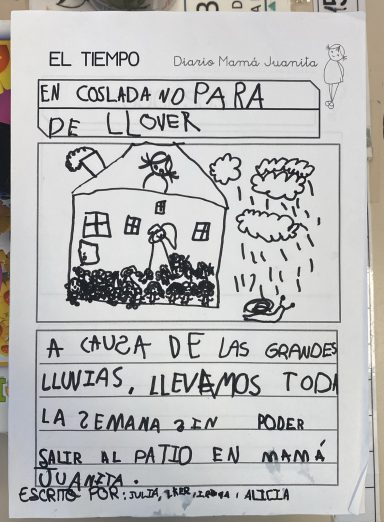 EL TIEMPO Diario Mamá Juanita
EN COSLADA NO PARA
DE LLOVER
A CAUSA DE LAS GRANDES
LLUVIAS, LLEVAMOS TODA
LA SEMANA SIN PODER
SALIR AL PATIO EN MAMÁ
JUANITA.
ESCRITO POR: JULIA, IKER, , ALICIA